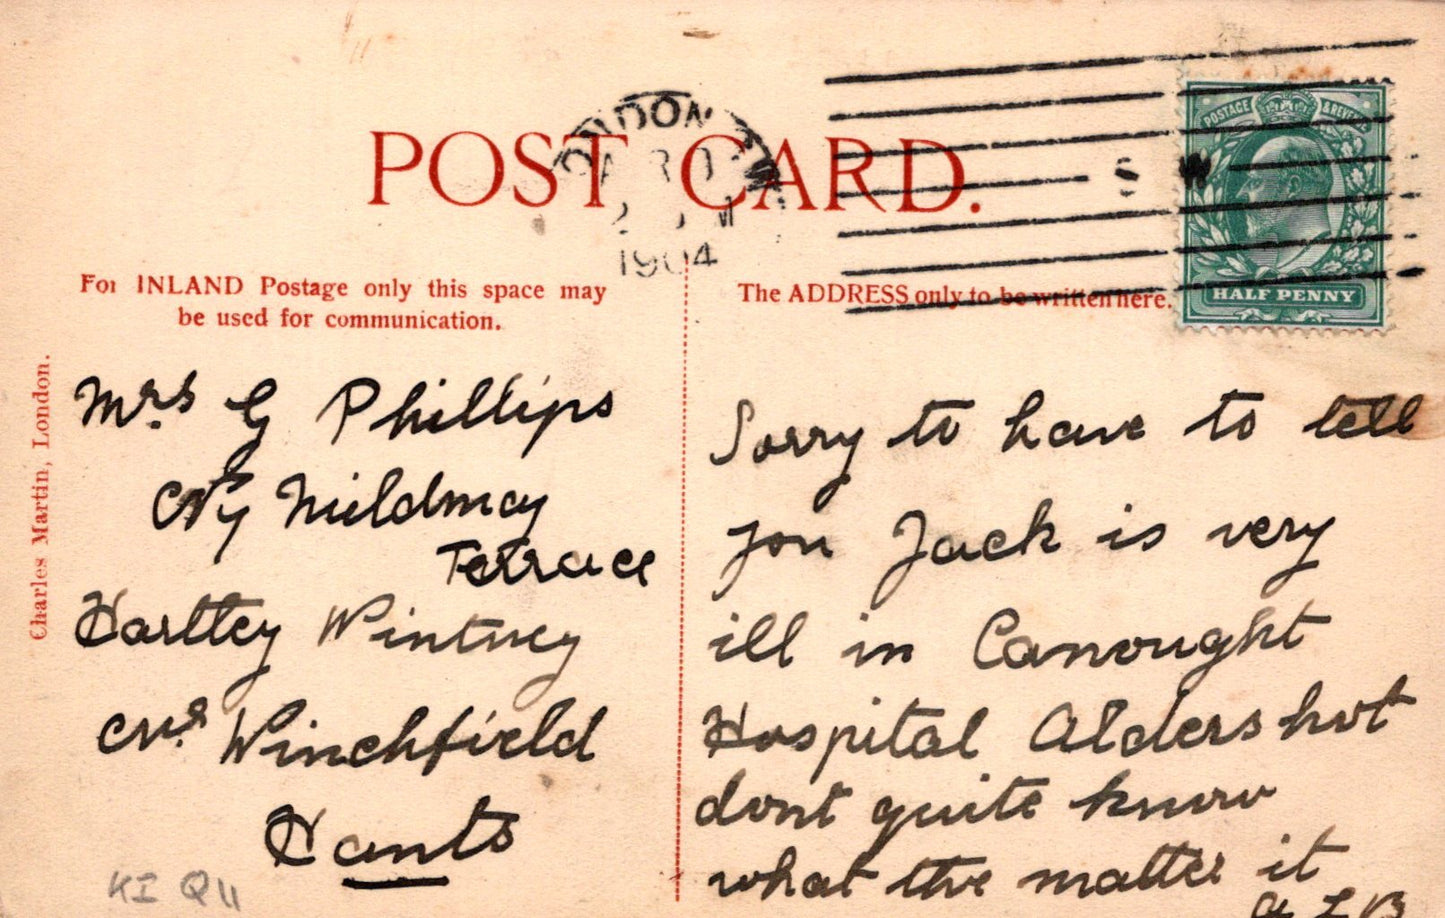 POST CARD.
LONDON S.W.
1904
S W
POSTAGE & REVENUE
HALF PENNY
For INLAND Postage only this space may
be used for communication.
The ADDRESS only to be written here.
Charles Martin, London.
Mrs G Phillips
Mildmay
Terrace
Hartley Wintney
Winchfield
Hants
Sorry to have to tell
you Jack is very
ill in Canought
Hospital Aldershot
dont quite know
what the matter it
KI Q11